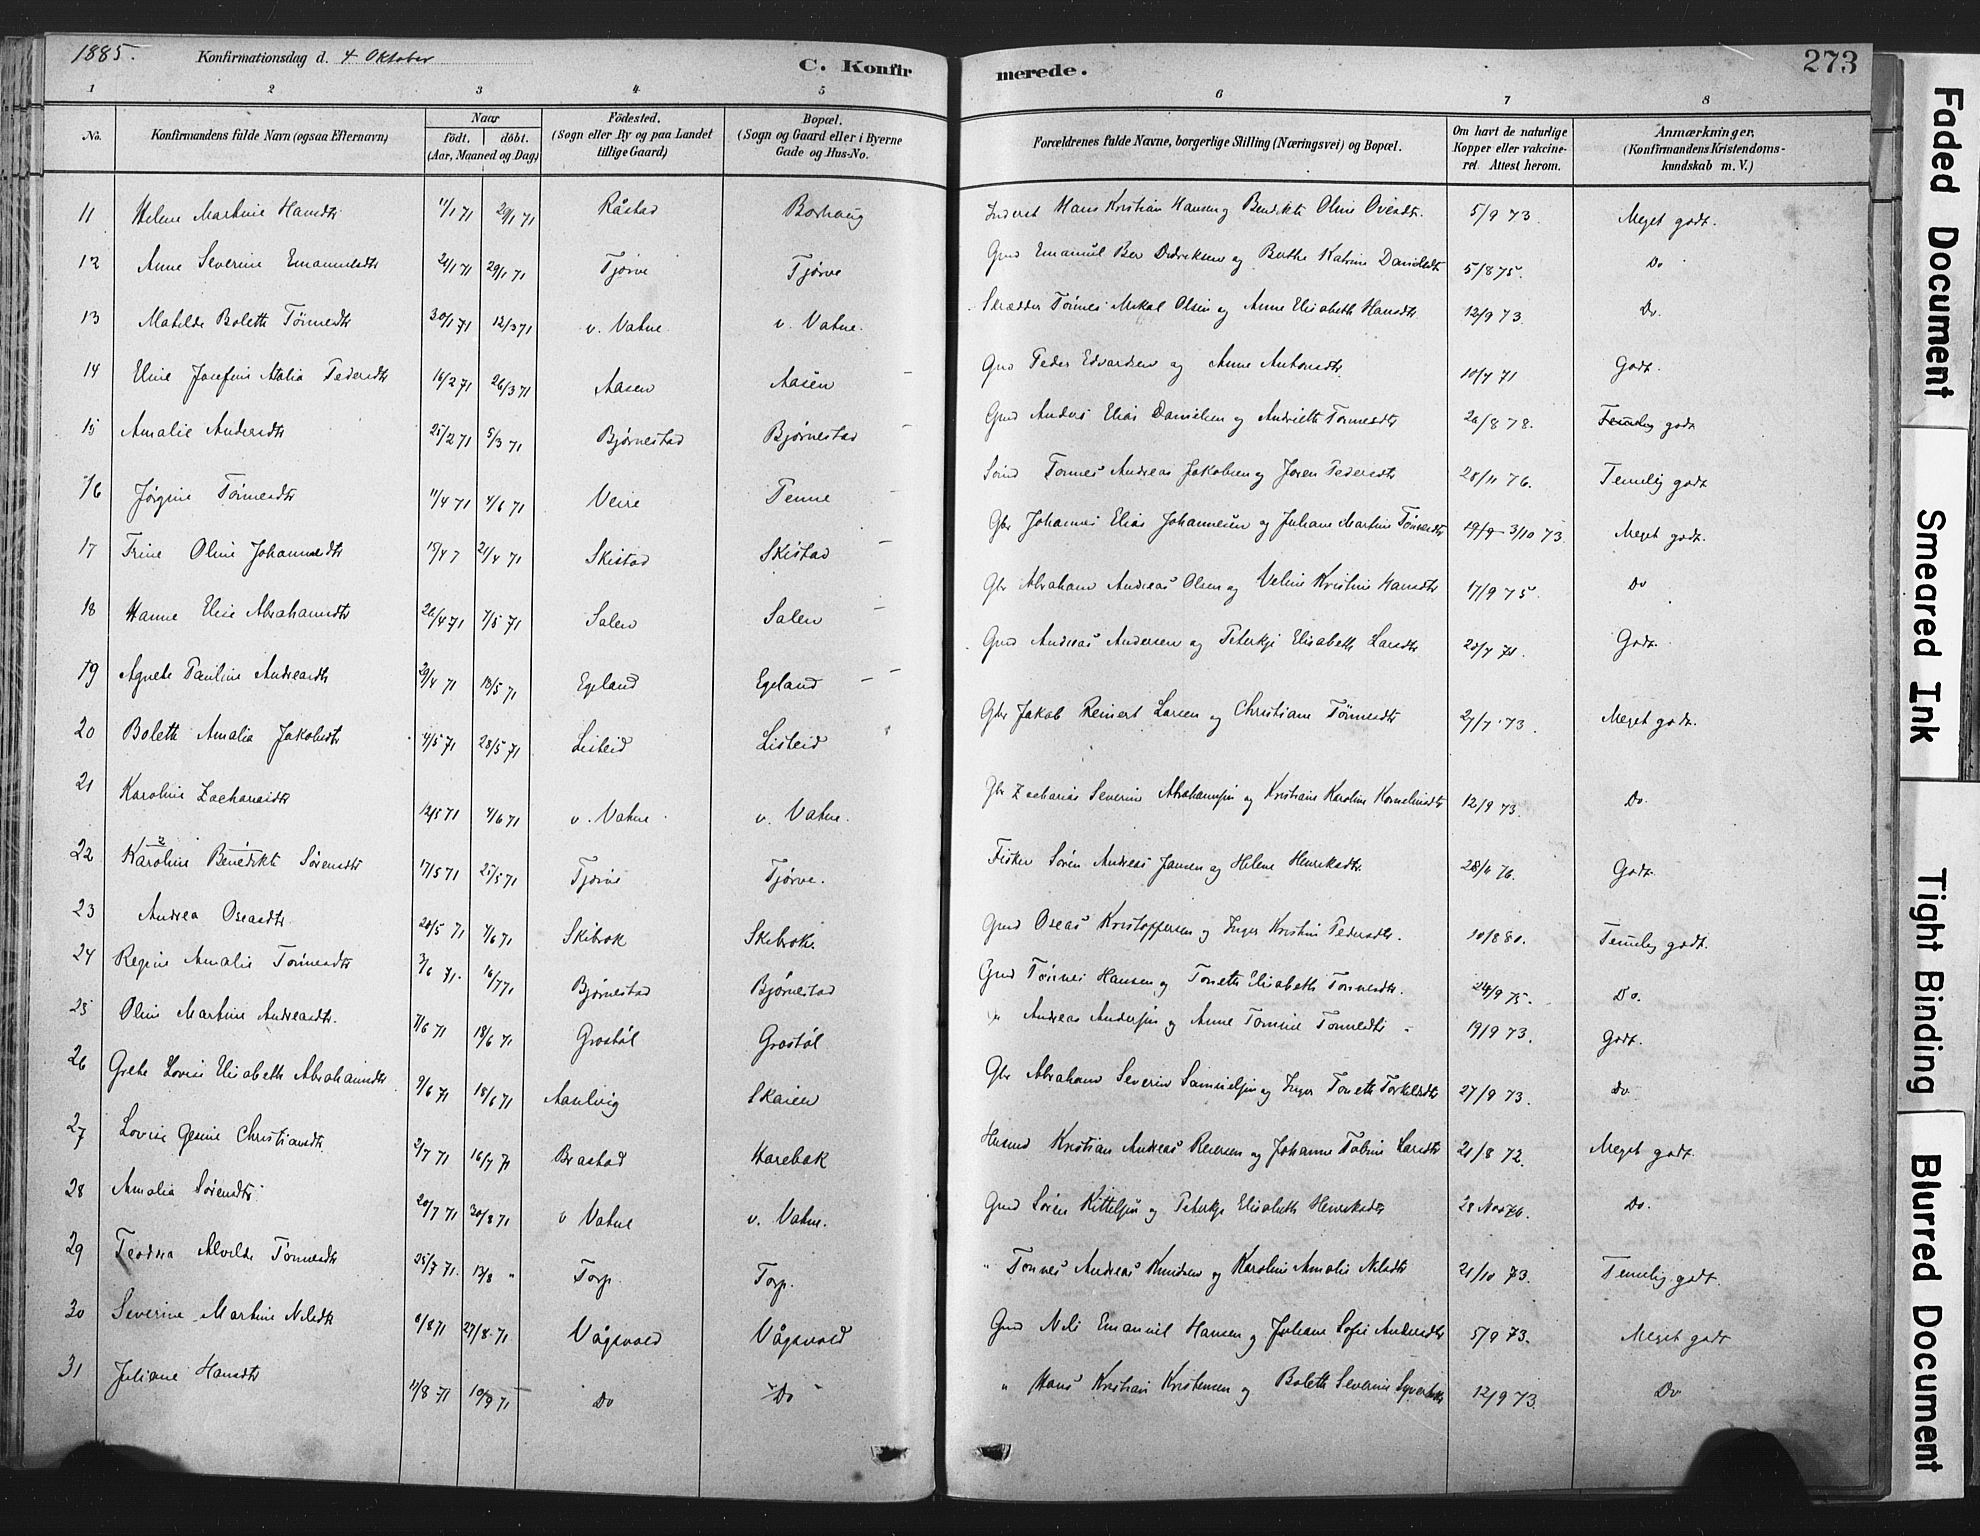 1885. Konfirmationsdag d. 4 Oktober C. Konfirmerede. 273
1 2 3 4 5 6 7 8
No. Konfirmandens fulde Navn (ogsaa Efternavn) Naar født. døbt. (Aar, Maaned og Dag) Fødested. (Sogn eller By og paa Landet tillige Gaard) Bopæl. (Sogn og Gaard eller i Byerne Gade og Hus-No. Forældrenes fulde Navne, borgerlige Stilling (Næringsvei) og Bopæl. Om havt de naturlige Kopper eller vakcineret. Attest herom. Anmærkninger, (Konfirmandens Kristendomskundskab m. V.)
11 Helene Martine Hansdtr 11/1 71 29/1 71 Råstad Borhaug Hans Kristian Hansen og Bendikte Oline Ovesdtr. 5/9 73. Meget godt.
12 Anne Severine Emanuelsdtr 21/1 71 29/1 71 Tjørve Tjørve Gmd Emanuel Ber Didriksen og Berthe Katrine Danielsdtr 5/8 75. Do
13 Matilde Bolette Tönnesdtr 30/1 71 12/3 71 v. Vatne v. Vatne. Skrædder Tönnes Mikal Olsen og Anne Elisabeth Hansdtr 12/9 73. Do.
14 Eline Josefine Atalia Pedersdtr 16/2 71 26/3 71 Aasen Aasen Gmd Peder Edvardsen og Anne Antonsdtr. 10/7 71 Godt.
15 Amalie Andersdtr 25/2 71 5/3 71 Bjørnestad Bjørnestad Gmd Anders Elias Danielsen og Andriette Tönnesdtr 26/8 78. Temelig godt
16 Jørgine Tönnesdtr 11/4 71 4/6 71 Veire Penne Tönnes Andreas Jakobsen og Joren Pedersdtr 28/11 76. Temelig godt
17 Trine Oline Johannesdtr 15/4 7 21/4 71 Skistad Skistad Gbr Johannes Elias Johannesen og Juliane Martine Tönnesdtr 19/9 - 3/10 73. Meget godt.
18 Hanne Elise Abrahamsdtr 26/4 71 7/5 71 Salen Salen Gbr Abraham Andreas Olsen og Veline Kristine Hansdtr 17/9 75. Do
19 Agnete Pauline Andreasdtr 29/4 71 18/5 71 Egeland Egeland Gmd Andreas Andersen og Peterkje Elisabeth Larsdtr 20/7 71. Godt.
20 Bolette Amalia Jakobsdtr 4/5 71 28/5 71 Listeid Listeid Gbr Jakob Reinert Larsen og Christiane Tönnesdtr 27/7 73. Meget godt.
21 Karoline Zachariasdtr 12/5 71 4/6 71 v. Vatne v. Vatne. Gbr Zacharias Severin Abrahamsen og Kristiane Karoline Korneliusdtr 12/9 73. Do.
22 Karoline Benedikte Sørensdtr 17/5 71 25/5 71 Tjørve Tjørve. Fisker Søren Andreas Jansen og Helene Henriksdtr. 28/11 76. Godt.
23 Andrea Oseasdtr. 20/5 71 4/6 71 Skibrok Skibrok. Gmd Oseas Kristoffersen og Inger Kristine Pedersdtr. 10/8 80. Temelig godt.
24 Regine Amalie Tönnesdtr 3/6 71. 16/7 71 Bjørnestad Bjørnestad Gmd Tönnes Hansen og Tonette Elisabeth Tönnesdtr. 24/9 75. Do.
25 Oline Martine Andreasdtr. 7/6 71 18/6 71 Grostøl Grostøl Andreas Andersen og Anne Tomine Tönnesdtr 19/9 73. Godt.
26 Grethe Lovise Elisabeth Abrahamsdtr. 9/6 71 18/6 71 Aanlvig Skaien Gbr Abraham Severin Samuelsen og Inger Tonette Torkelsdtr 27/9 73. Do
27 Lovise Gesine Christiansdtr. 2/7 71 16/7 71 Brastad Harebak Husmd Kristian Andreas Reiersen og Johanne Tobine Larsdtr 21/8 72. Meget godt.
28 Amalia Sørensdtr 20/7 71 30/8 71 v Vatne v. Vatne. Gmd Søren Kittelsen og Peterkje Elisabeth Henriksdtr 28 Nov 76. Do.
29 Teodora Alvilde Tönnesdtr 25/7 71. 13/8 " Torp. Torp. " Tönnes Andreas Knudsen og Karoline Amalie Nilsdtr 21/10 73. Temelig godt.
30 Severine Martine Nilsdtr 6/8 71 27/8 71 Vågsvold Vågsvold Gmd Nils Emanuel Hansen og Juliane Sofie Andersdtr 5/9 73. Meget godt
31 Juliane Hansdtr 11/8 71 10/9 71 Do Do " Hans Kristian Kristensen og Bolette Severine Syvertsdtr 12/9 73. Do
Faded Document
Smeared Ink
Tight Binding
Blurred Document